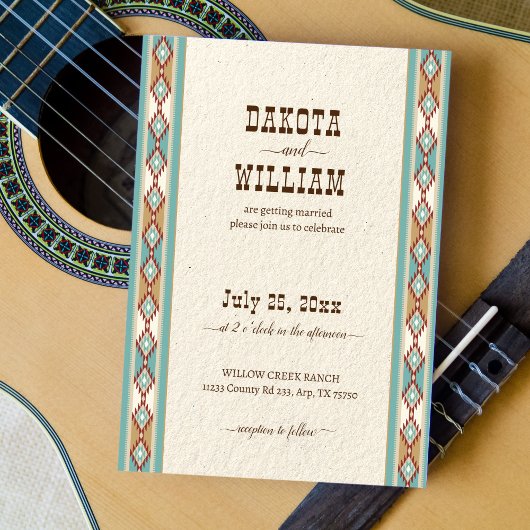 DAKOTA
and
WILLIAM
are getting married
please join us to celebrate
July 25, 20xx
at 2 o'clock in the afternoon
WILLOW CREEK RANCH
11233 County Rd 233, Arp, TX 75750
reception to follow